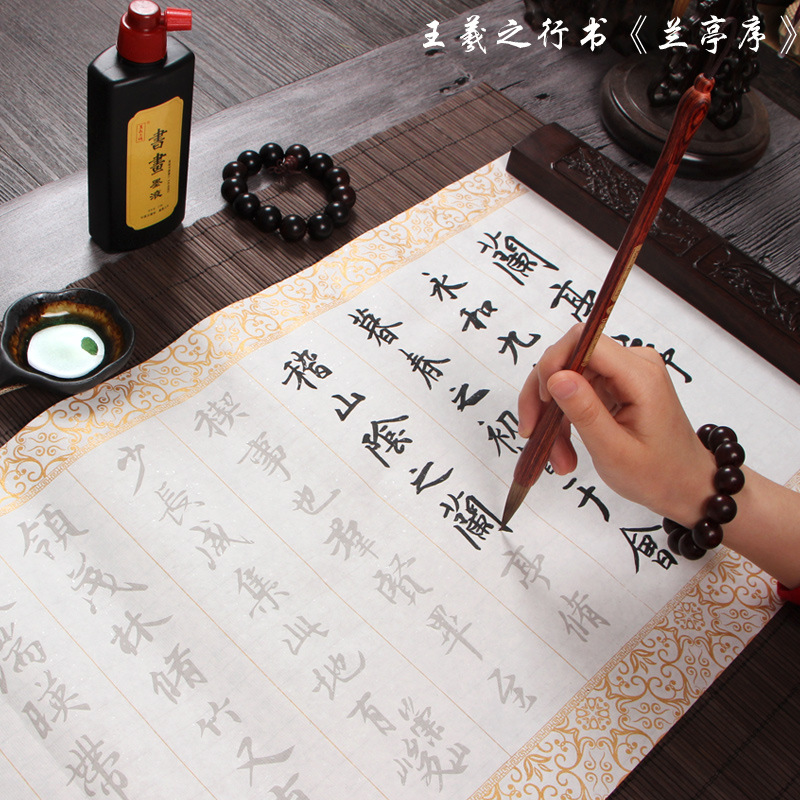 王羲之行书《兰亭序》
書畫墨液
蘭亭
永和九
暮春之初會于會
稽山陰之蘭亭脩
禊事也羣賢畢至
少長咸集此地有崇山峻
領茂林脩竹又有
湍暎帶